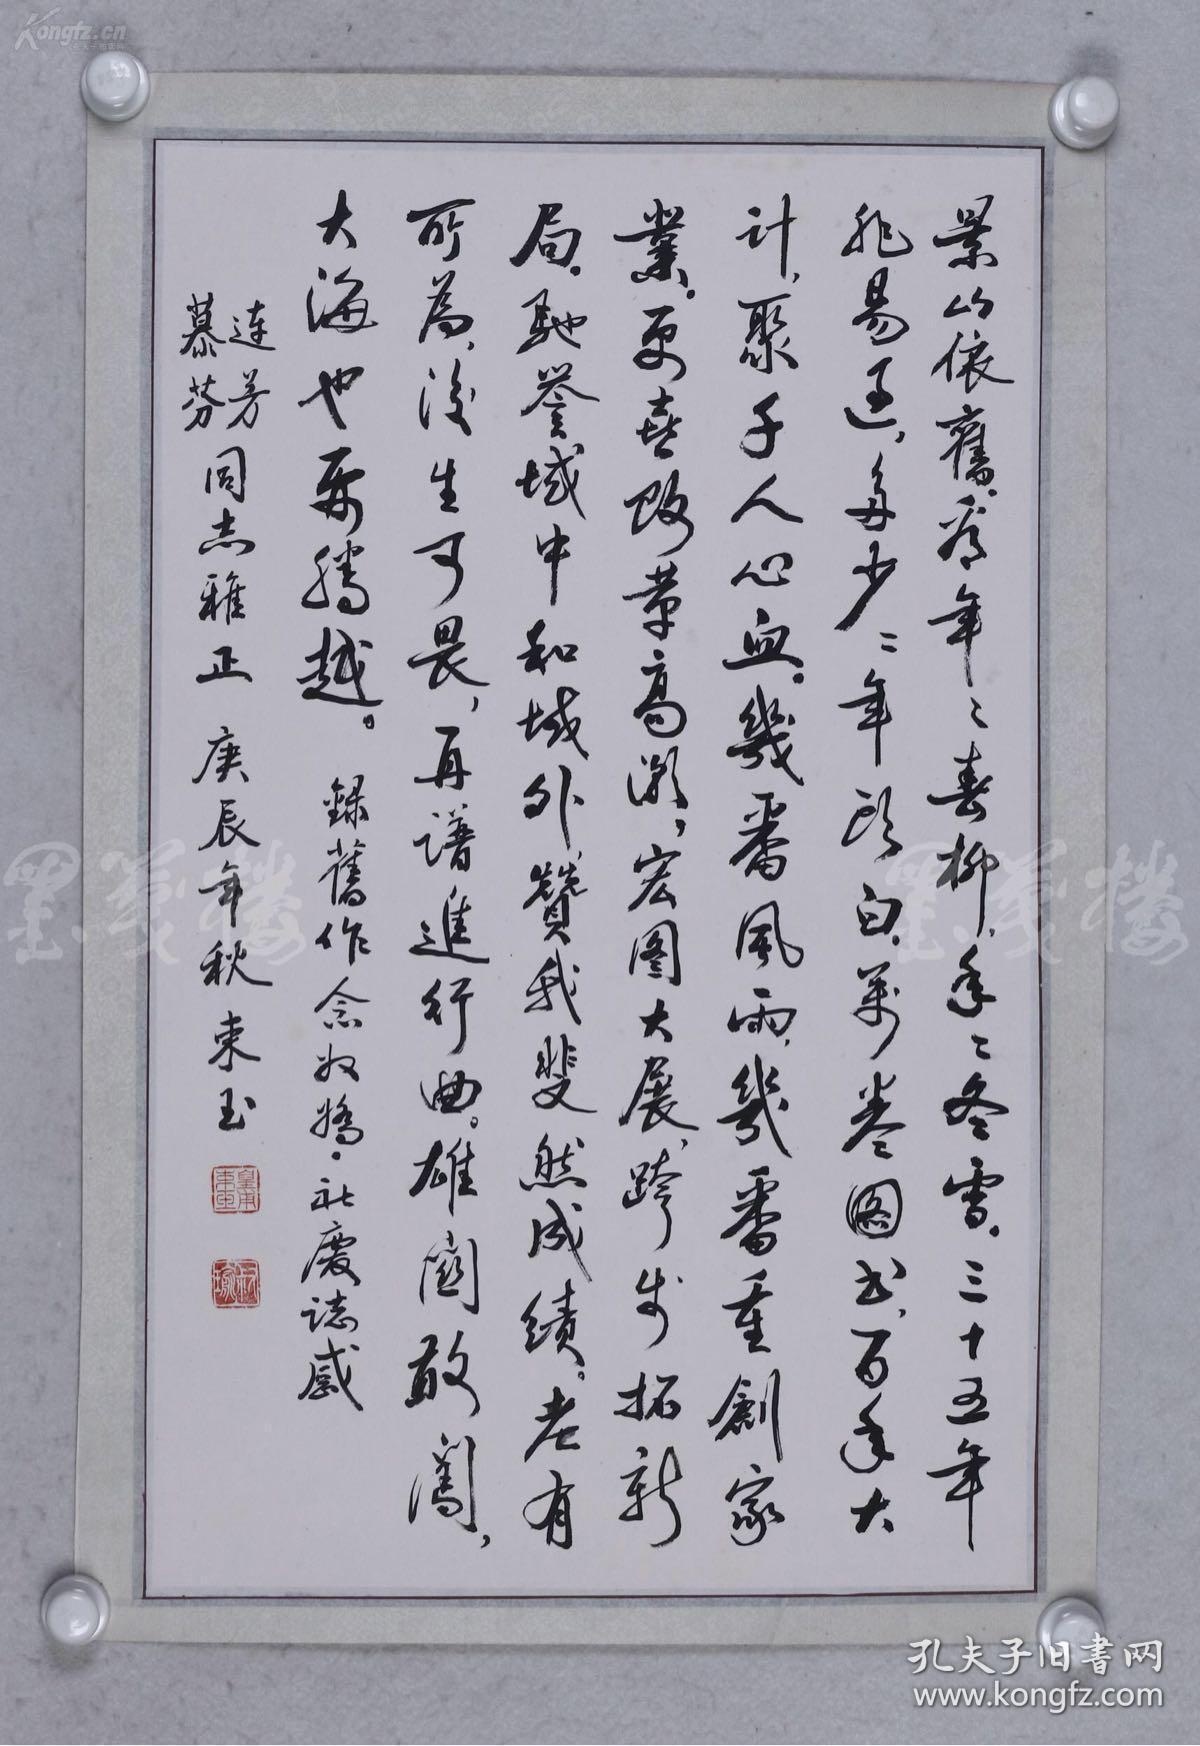 景山依舊。看年〻春柳，年〻冬雪。三十五年
非易過，多少〻年頭白。萬卷圖书，百年大
计，聚千人心血。幾番風雨，幾番重創家
業。更喜改革高潮，宏图大展，跨步拓新
局。馳誉域中和域外，贊我斐然成績。老有
所為，後生可畏，再譜進行曲。雄關敢闖，
大海也要騰越。
錄舊作念奴嬌·社慶誌感
連芳
慕芬
同志雅正 庚辰年秋 東玉
孔夫子旧書网
www.kongfz.com
Kongfz.cn